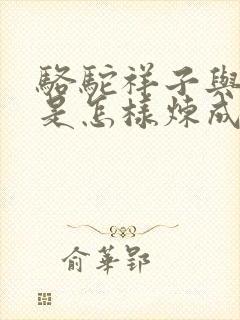 駱駝祥子與
是怎樣煉成
俞華郢